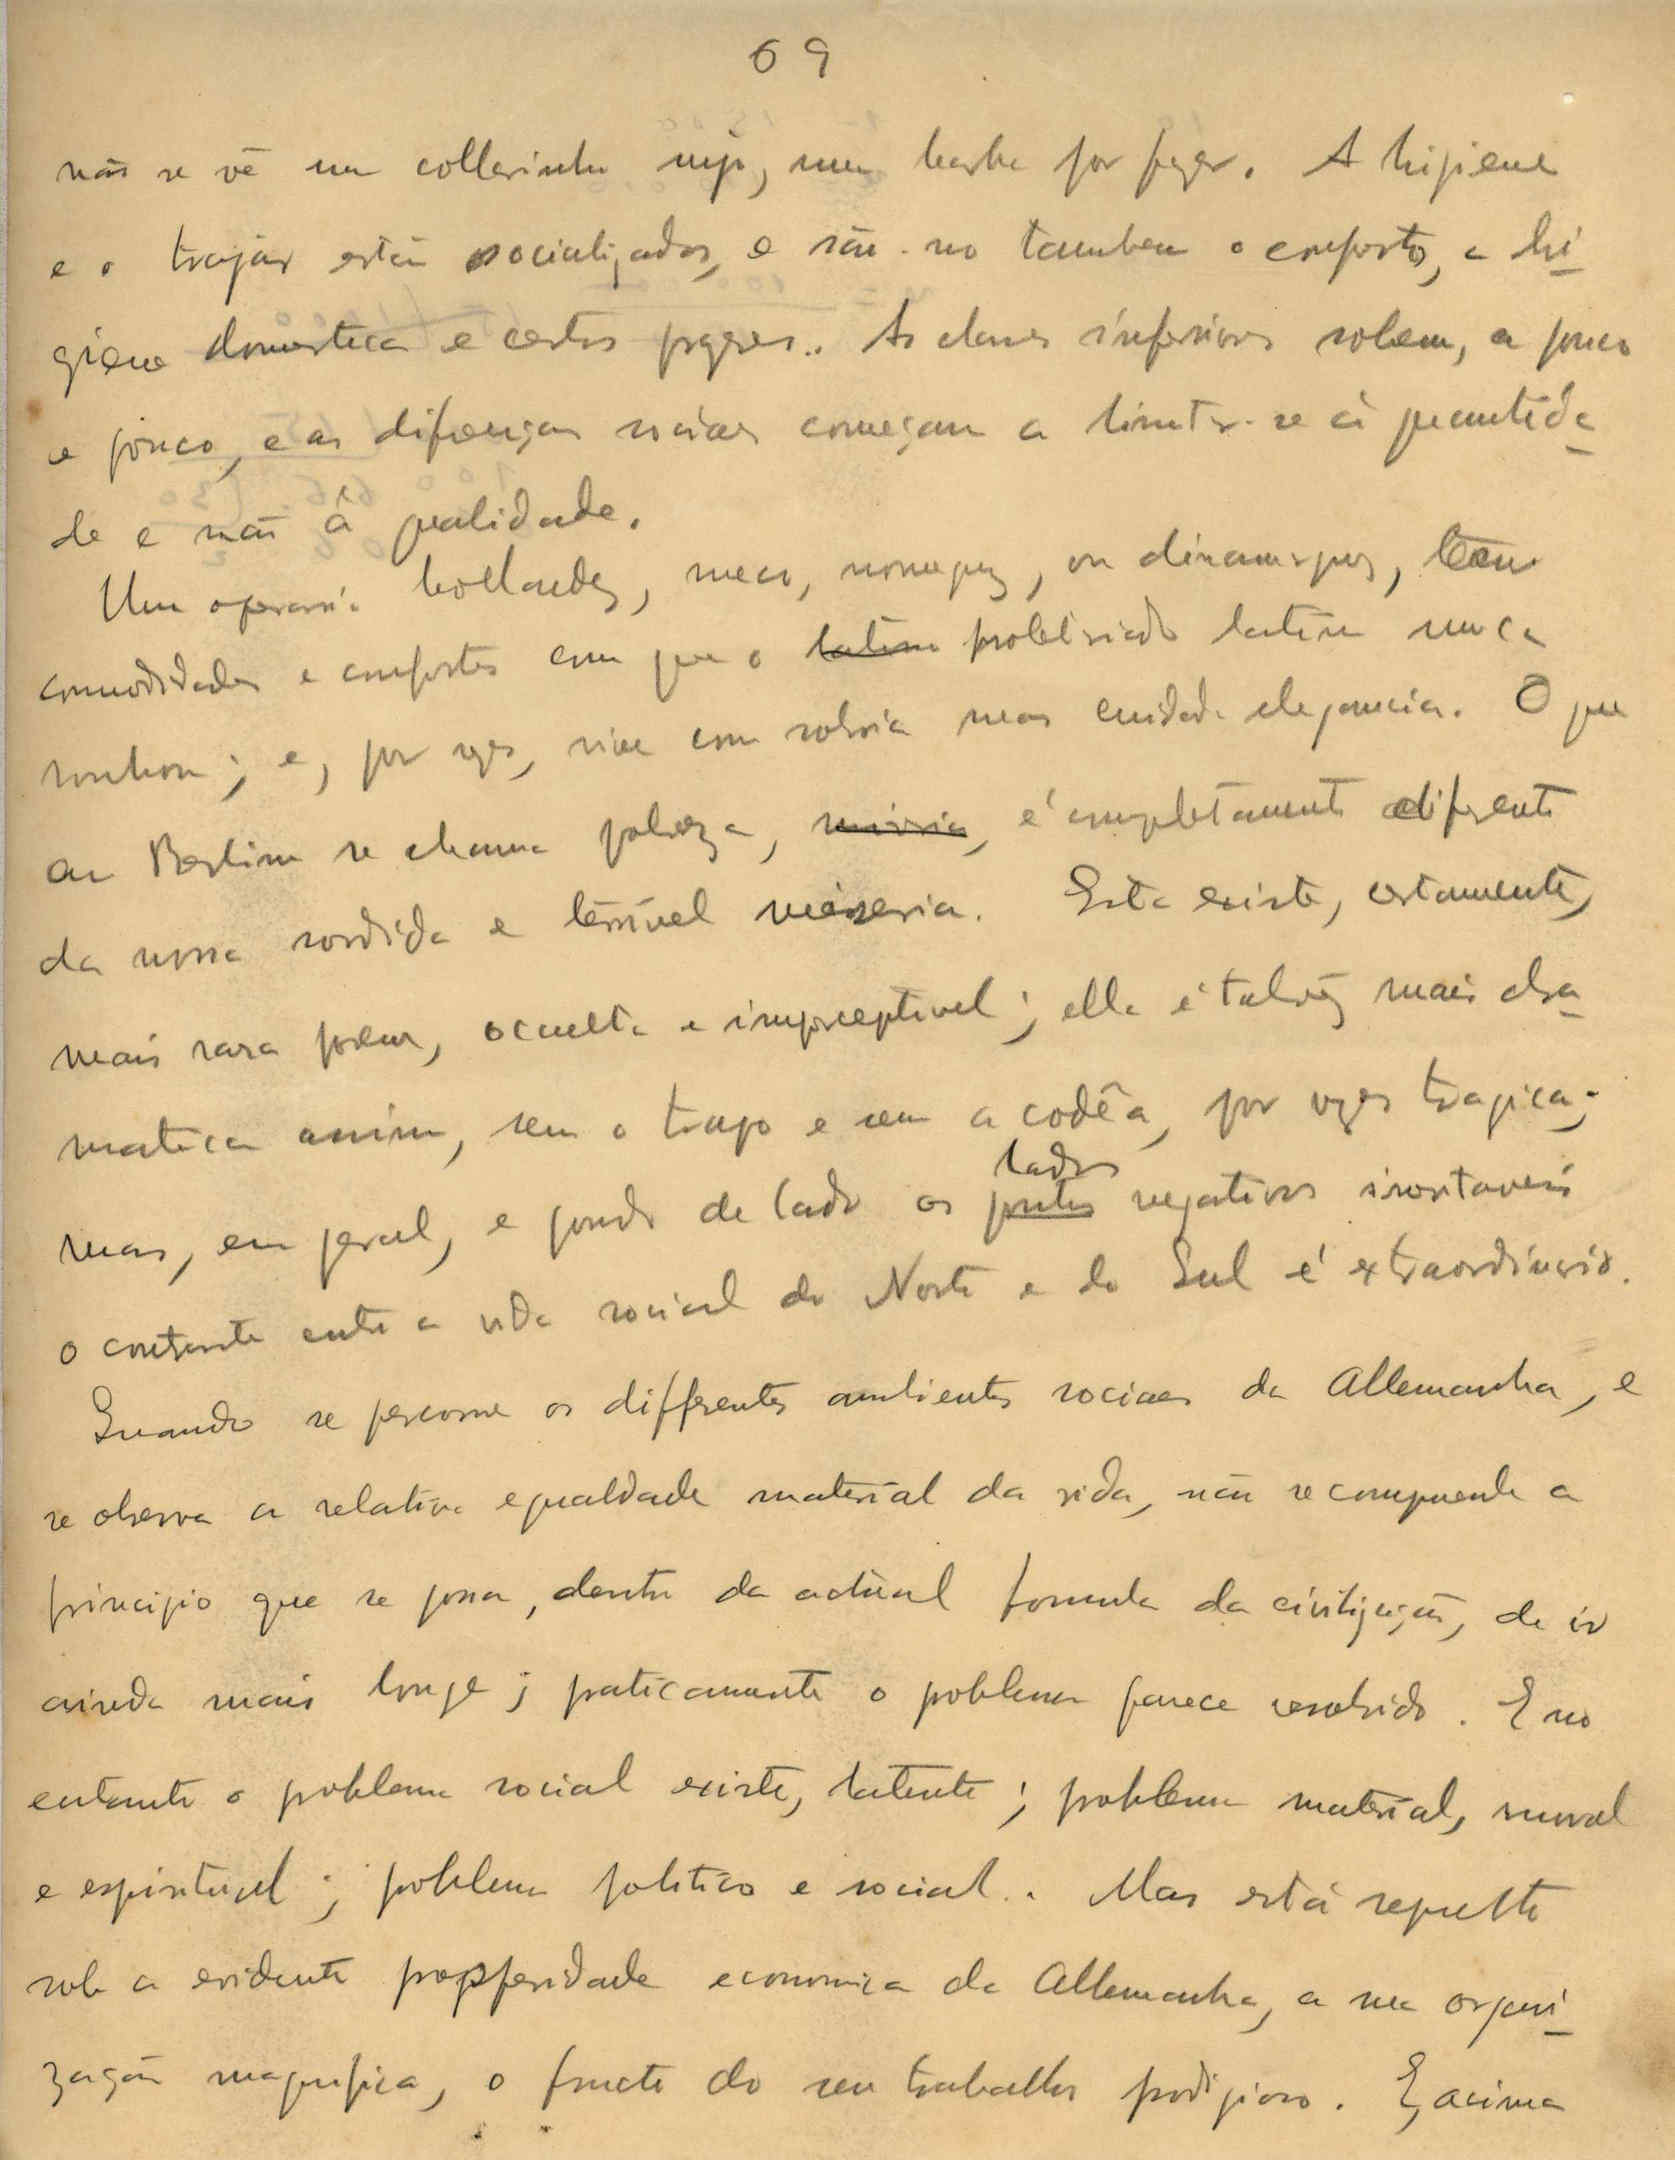 69
não se vê um collarinho sujo, uma barba por fazer. A higiene
e o trajar estão socializados, e são-no tambem o conforto, a hi-
giene domestica e certos prazeres.. As classes inferiores sobem, a pouco
e pouco, e as diferenças sociaes começam a limitar-se á quantida-
de e não á qualidade.
Um operario hollandez, sueco, norueguez, ou dinamarquez, tem
commodidades e confortos com que o latino proletariado latino nunca
sonhou; e, por vezes, vive com sobria mas cuidada elegancia. O que
em Berlim se chama pobreza, miseria, é completamente diferente
da nossa sordida e terrivel miseria. Esta existe, certamente,
mais rara porem, occulta e imperceptivel; ella é talvez mais dra-
matica assim, sem o trapo e sem a codêa, por vezes tragica;
lados
mas, em geral, e pondo de lado os pontos negativos inevitaveis
o contraste entre a vida social do Norte e do Sul é extraordinario.
Quando se percorre os differentes ambientes sociaes da Allemanha, e
se observa a relativa egualdade material da vida, não se comprehende a
principio que se possa, dentro da actual formula da civilização, de ir
ainda mais longe; praticamente o problema parece resolvido. E no
entanto o problema social existe, latente; problema material, moral
e espiritual; problema politico e social.. Mas está
sob a evidente prosperidade economica da Allemanha, a sua organi-
zação magnifica, o fructo do seu trabalho prodigioso. E, acima